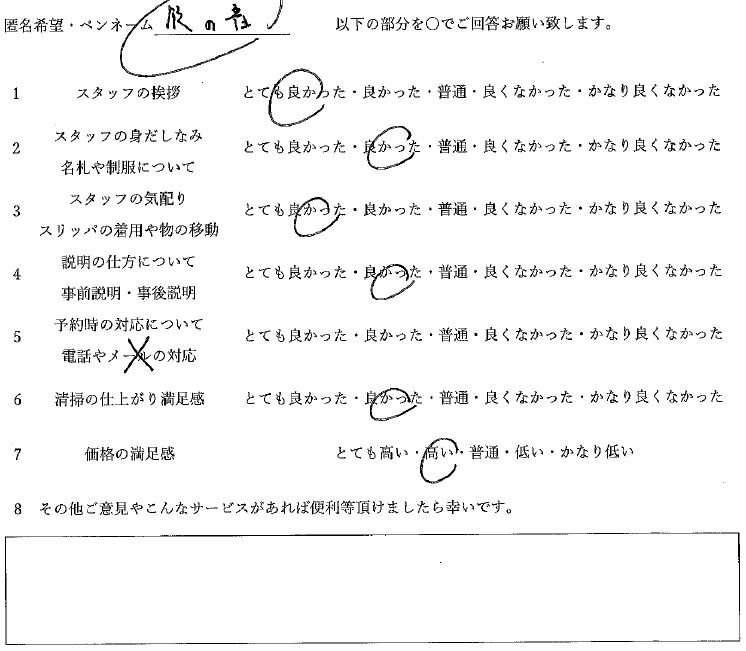 匿名希望・ペンネーム の 以下の部分を〇でご回答お願い致します。
1 スタッフの挨拶 とても良かった・良かった・普通・良くなかった・かなり良くなかった
2 スタッフの身だしなみ 名札や制服について とても良かった・良かった・普通・良くなかった・かなり良くなかった
3 スタッフの気配り スリッパの着用や物の移動 とても良かった・良かった・普通・良くなかった・かなり良くなかった
4 説明の仕方について 事前説明・事後説明 とても良かった・良かった・普通・良くなかった・かなり良くなかった
5 予約時の対応について 電話やメールの対応 とても良かった・良かった・普通・良くなかった・かなり良くなかった
6 清掃の仕上がり満足感 とても良かった・良かった・普通・良くなかった・かなり良くなかった
7 価格の満足感 とても高い・高い・普通・低い・かなり低い
8 その他ご意見やこんなサービスがあれば便利等頂けましたら幸いです。